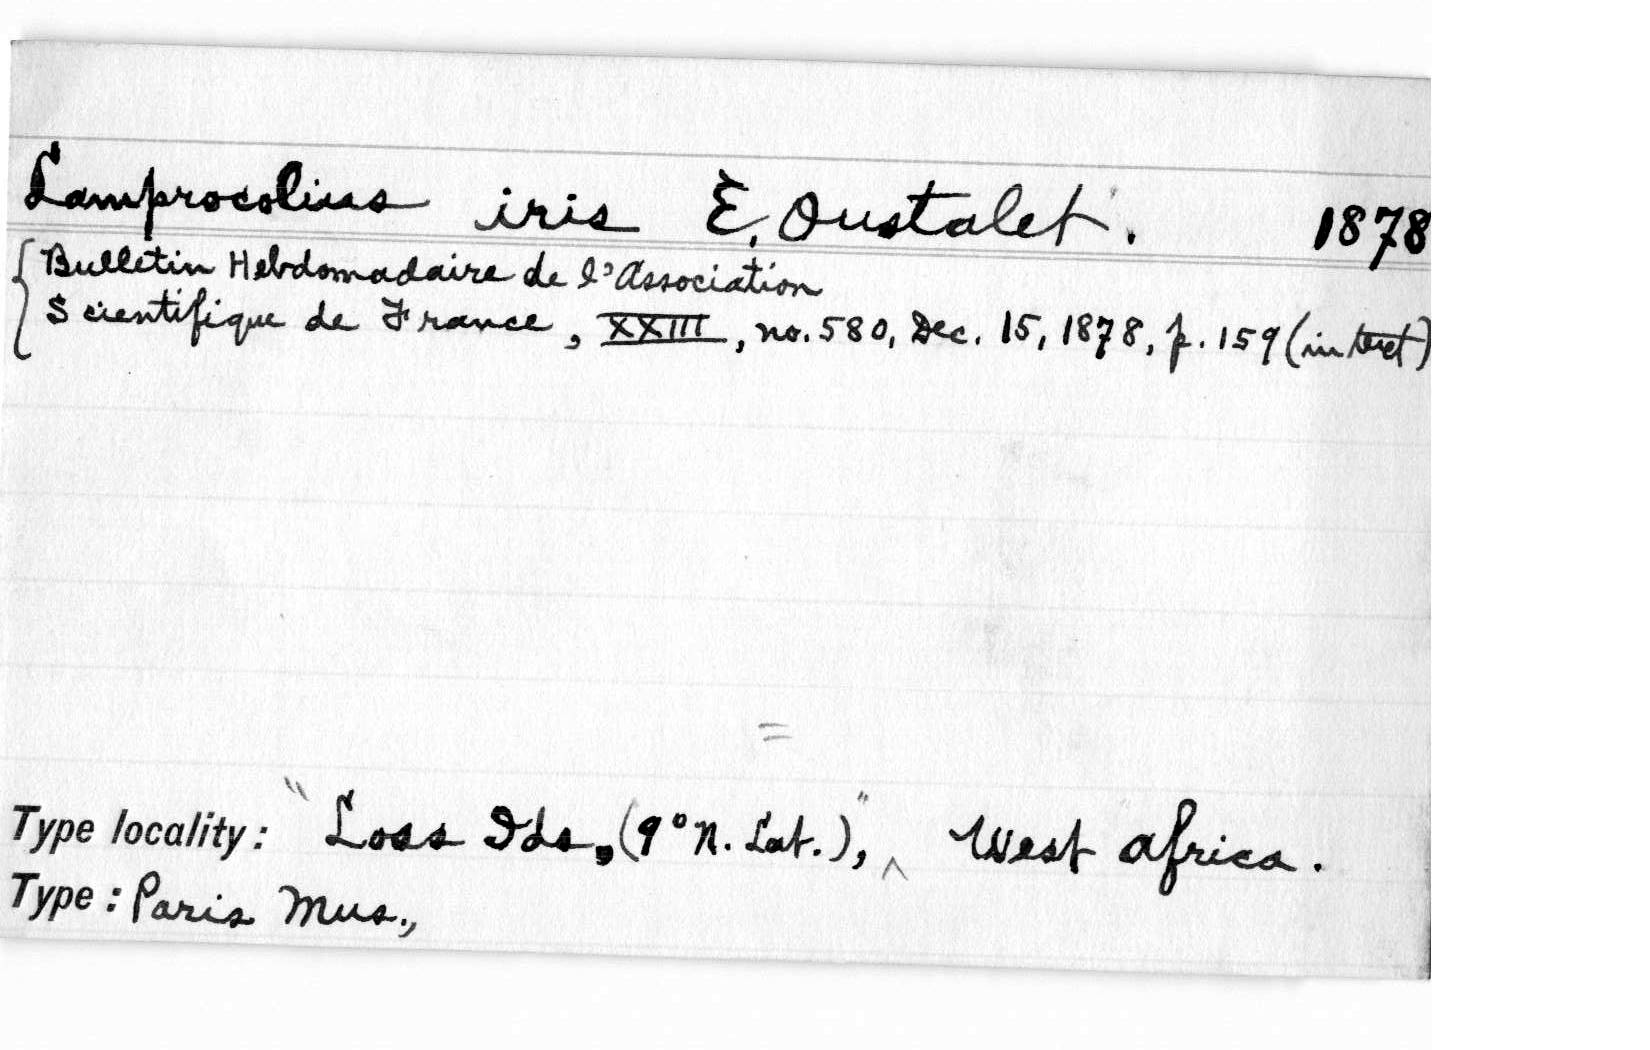 Lamprocolius iris É. Oustalet. 1878
Bulletin Hebdomadaire de l'Association
Scientifique de France, XXIII, no. 580, Dec. 15, 1878, p. 159 (in text)
=
Type locality: "Loss Ids, (9° N. Lat.)," ^ West Africa.
Type: Paris Mus.,